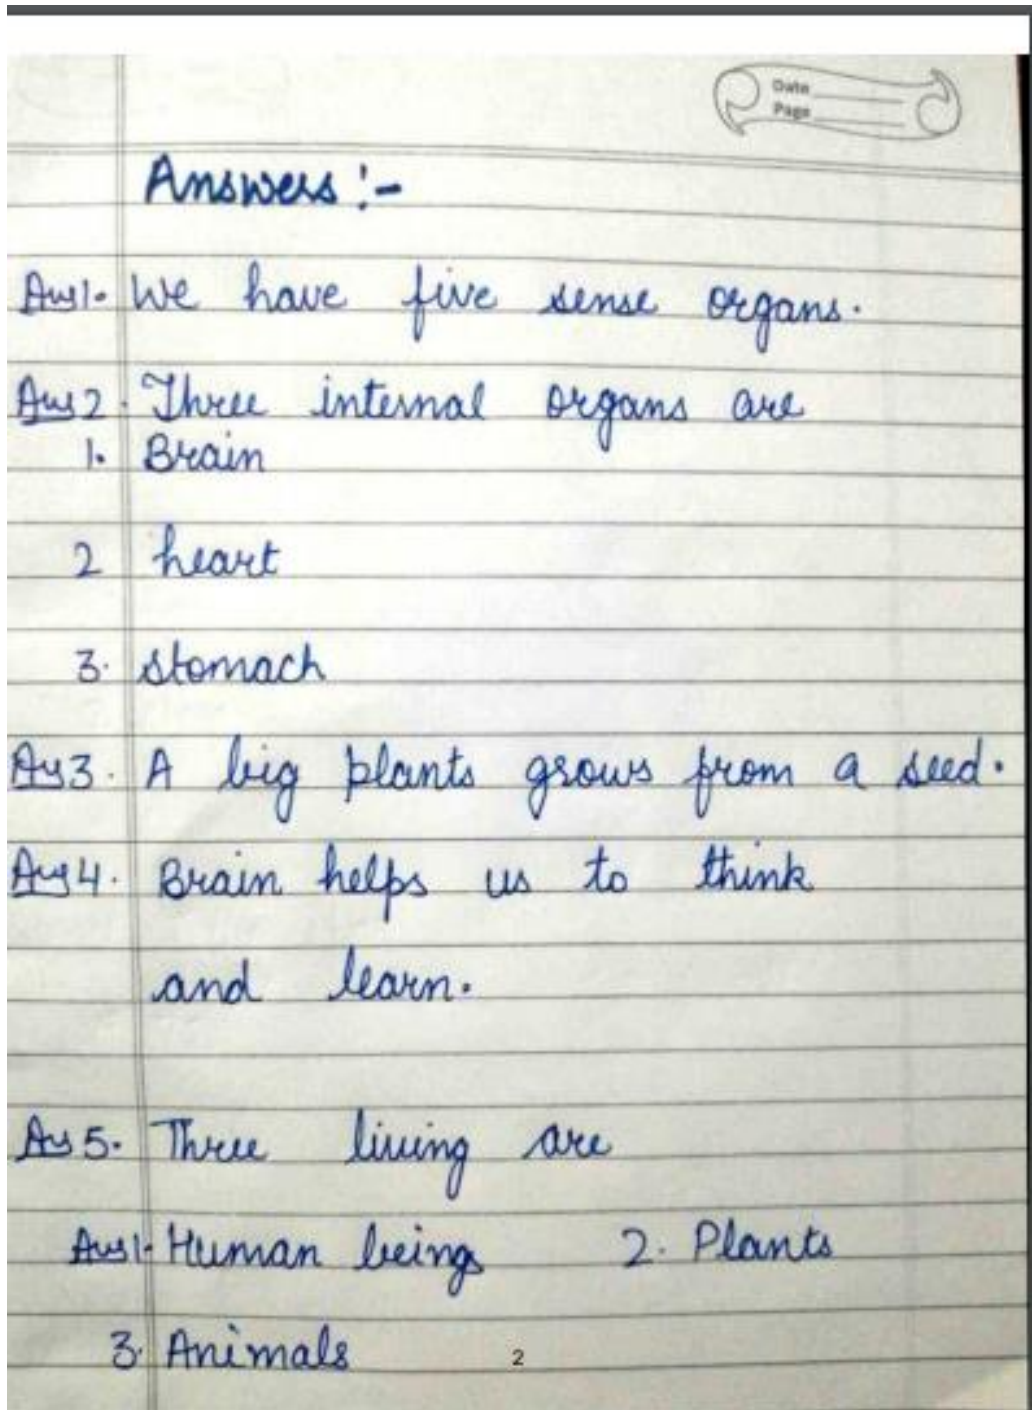 Date
Page
Answers :-
Ans1. We have five sense organs.
Ans2. Three internal organs are
1. Brain
2 heart
3. stomach
Ans3. A big plants grows from a seed.
Ans4. Brain helps us to think
and learn.
Ans5. Three living are
Ans1. Human beings 2. Plants
3. Animals
2